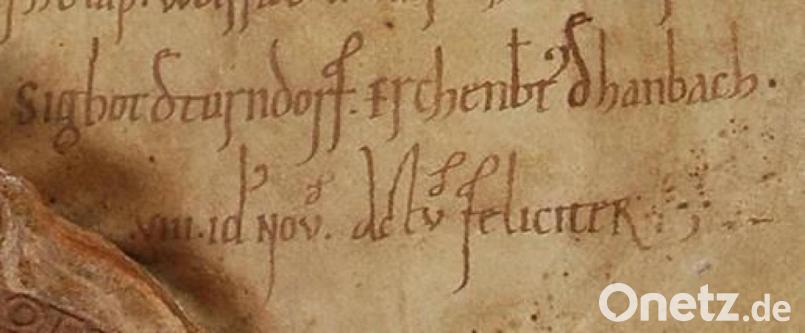 Sigbot d turndorf. Erchenbt d hanbach.
viii. id Nov. Actv feliciter
Onetz.de